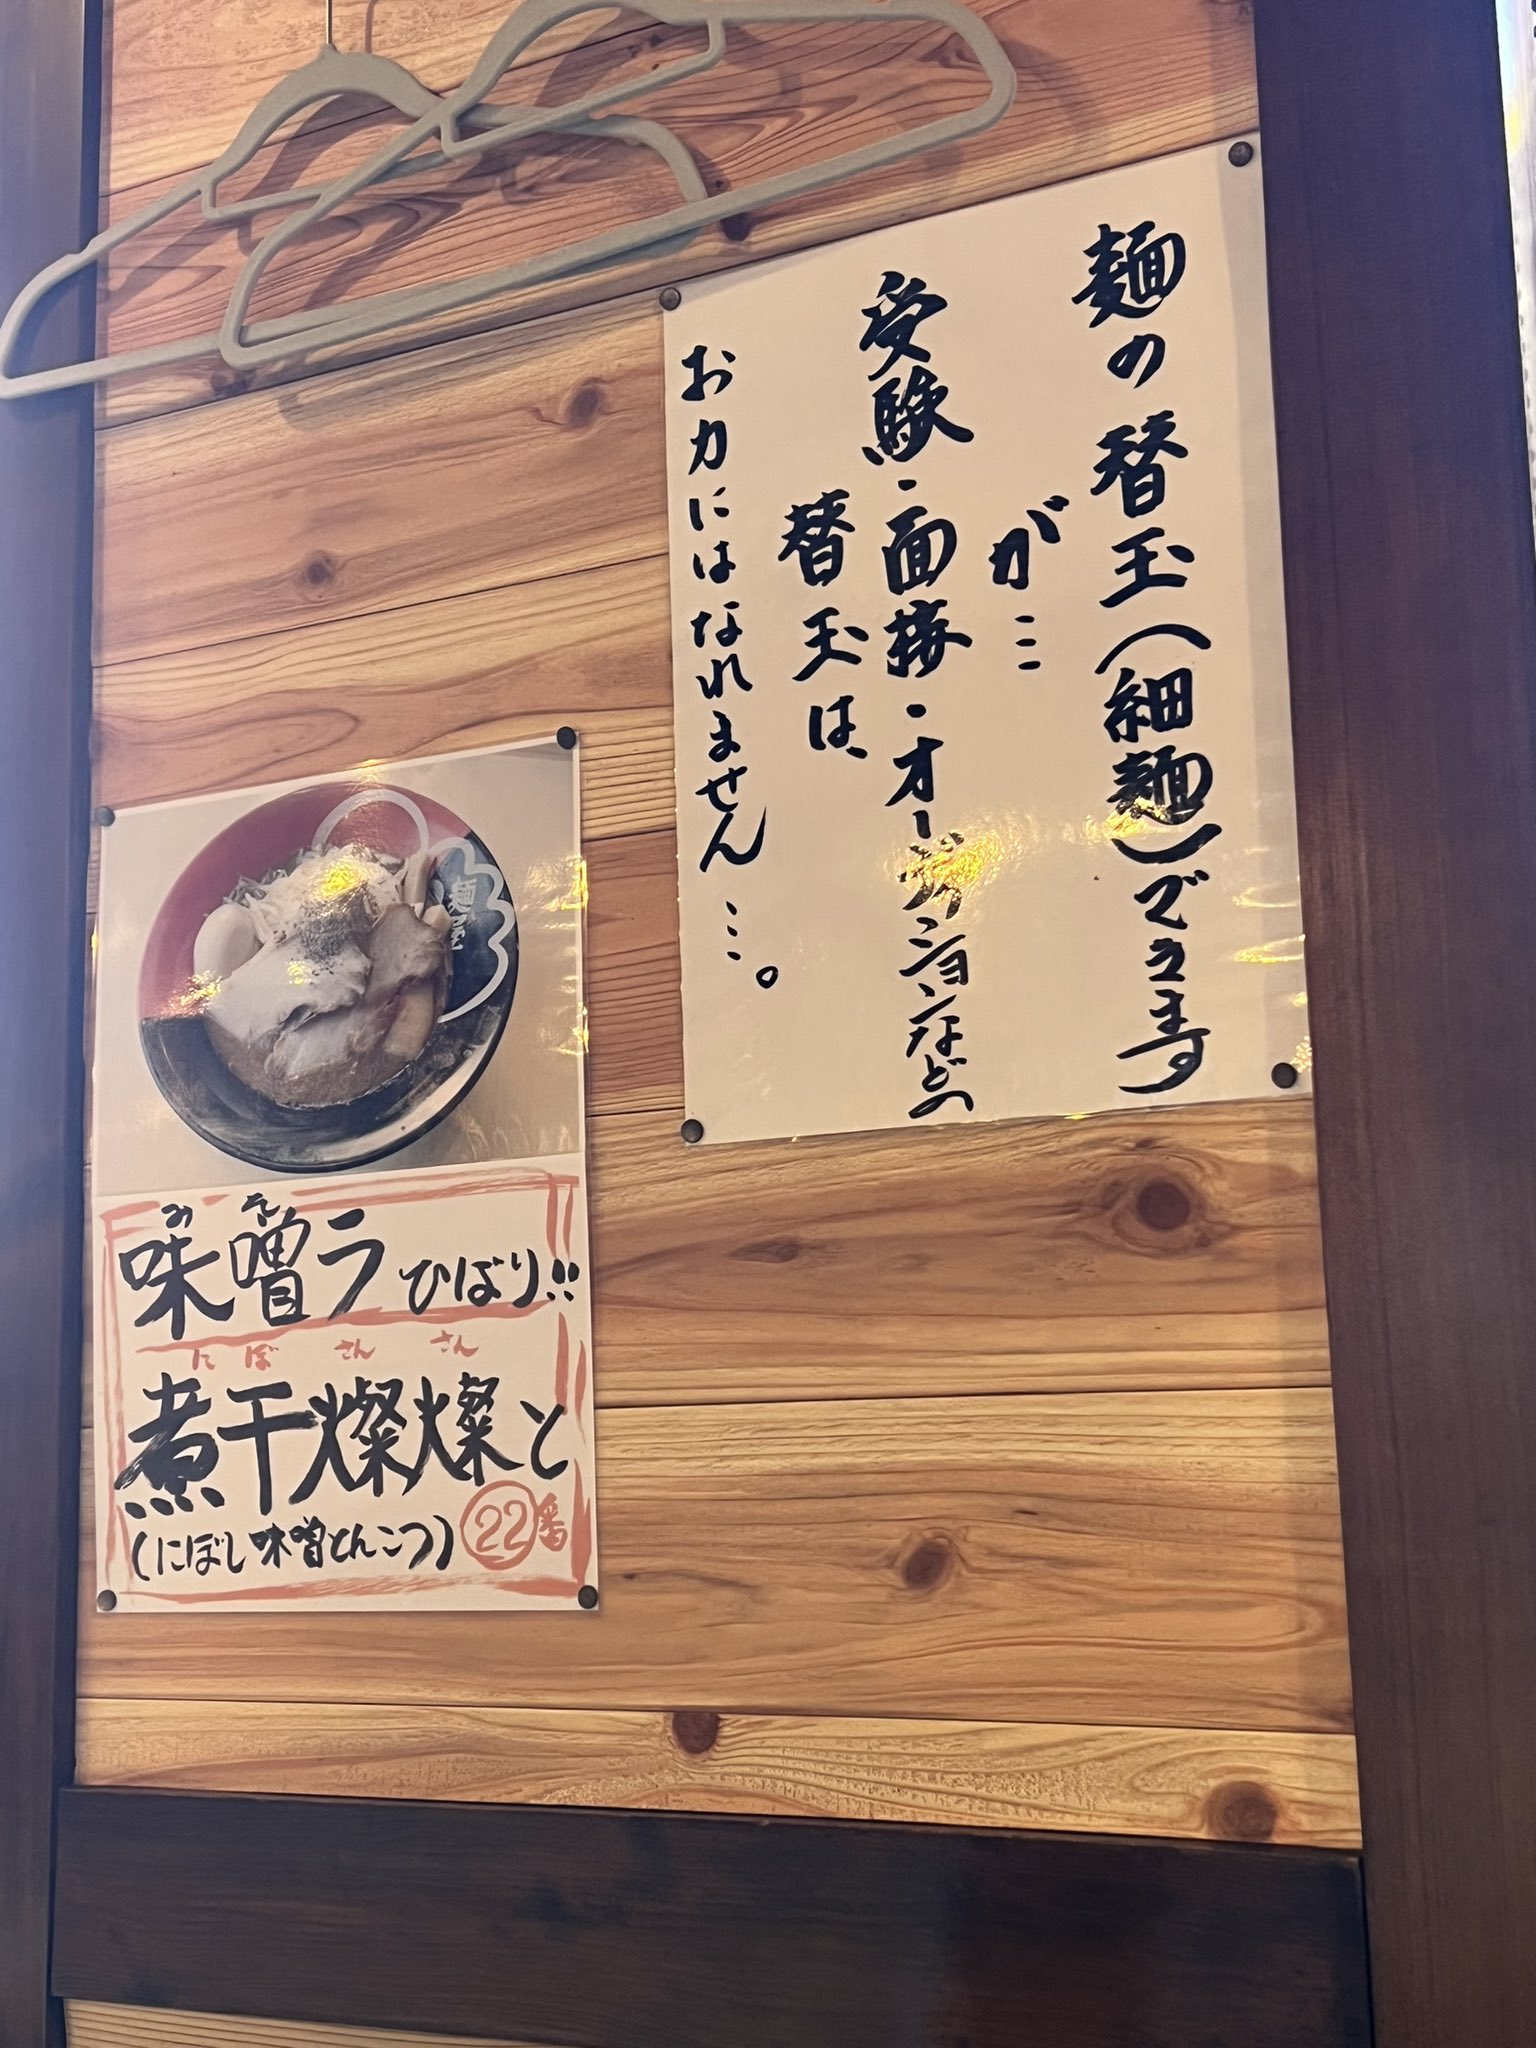 麺の替玉(細麺)できます
が…
受験・面接・オーディションなどの
替玉は、
お力にはなれません…。
麺屋
みそ
味噌ラひばり!!
にぼさんさん
煮干燦燦と
(にぼし味噌とんこつ)22番